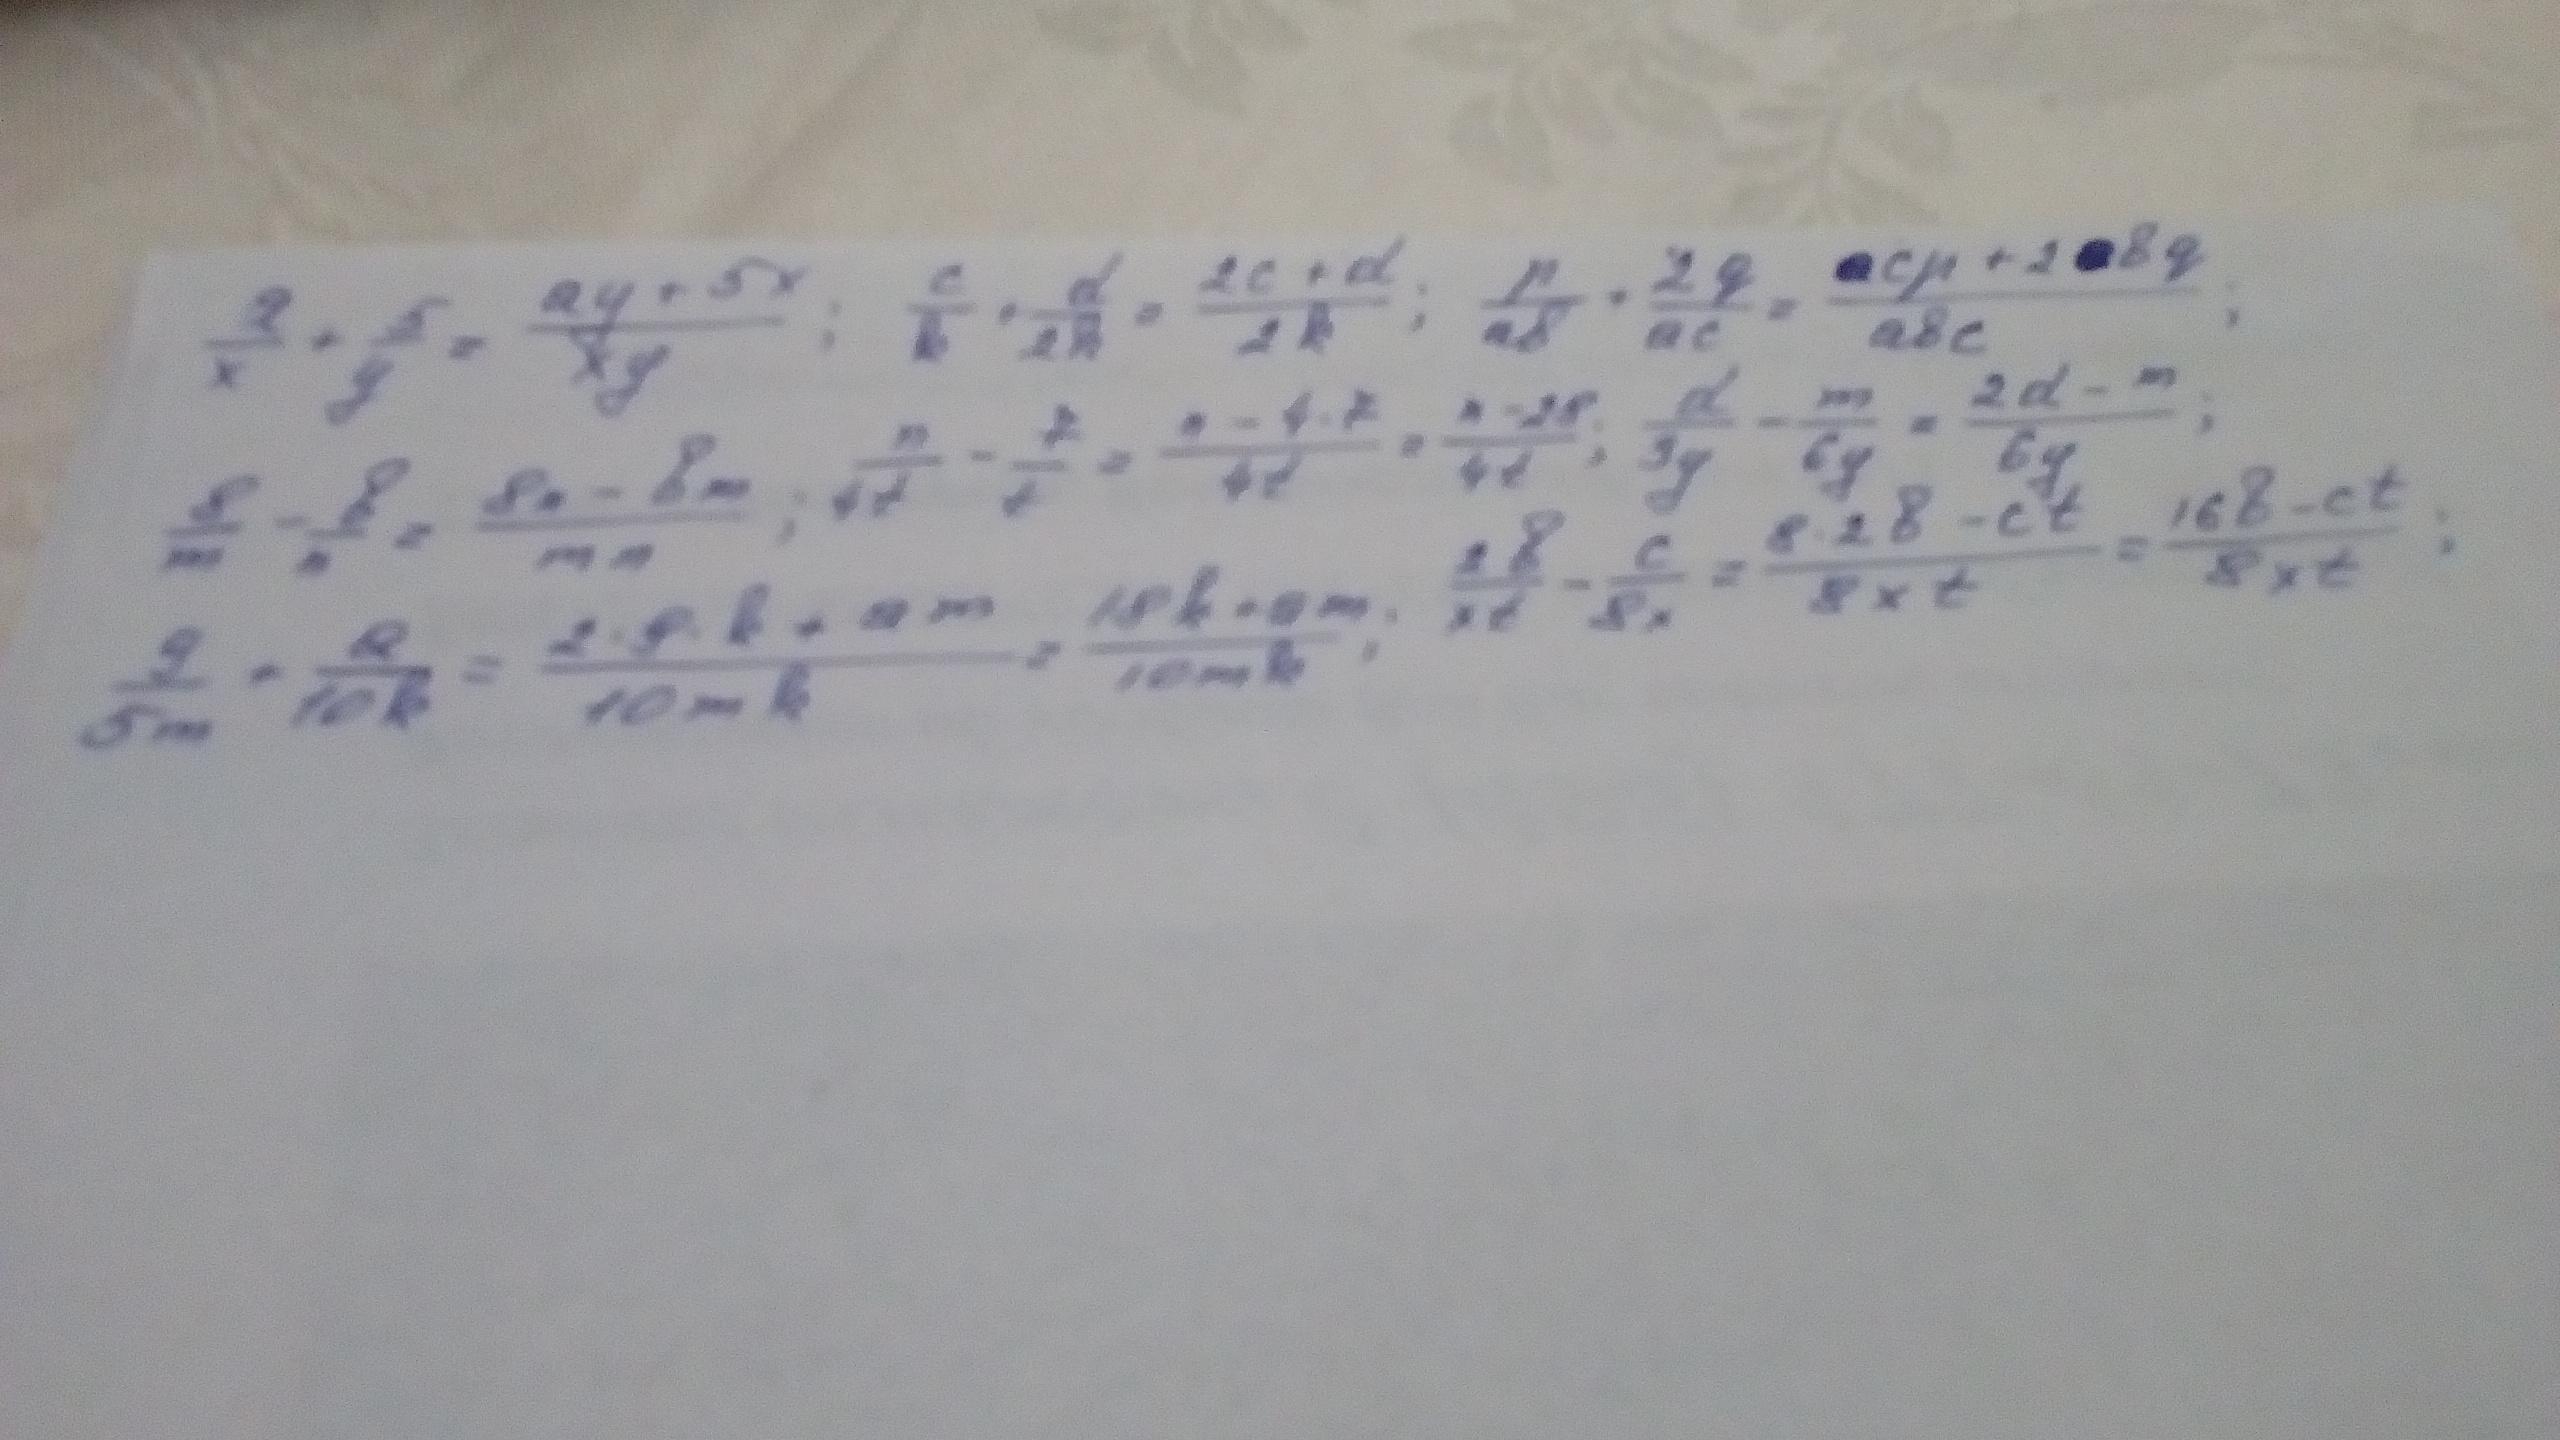 a/x + 5/y = (ay + 5x)/xy ; c/k + d/2k = (2c + d)/2k ; p/ab + 2q/ac = (cp + 2bq)/abc ;
8/m - b/n = (8n - bm)/mn ; n/4t - 7/t = (n - 4·7)/4t = (n - 28)/4t ; d/3y - m/6y = (2d - m)/6y ;
9/5m + a/10k = (2·9·k + am)/10mk = (18k + am)/10mk ; 2b/xt - c/8x = (8·2b - ct)/8xt = (16b - ct)/8xt ;